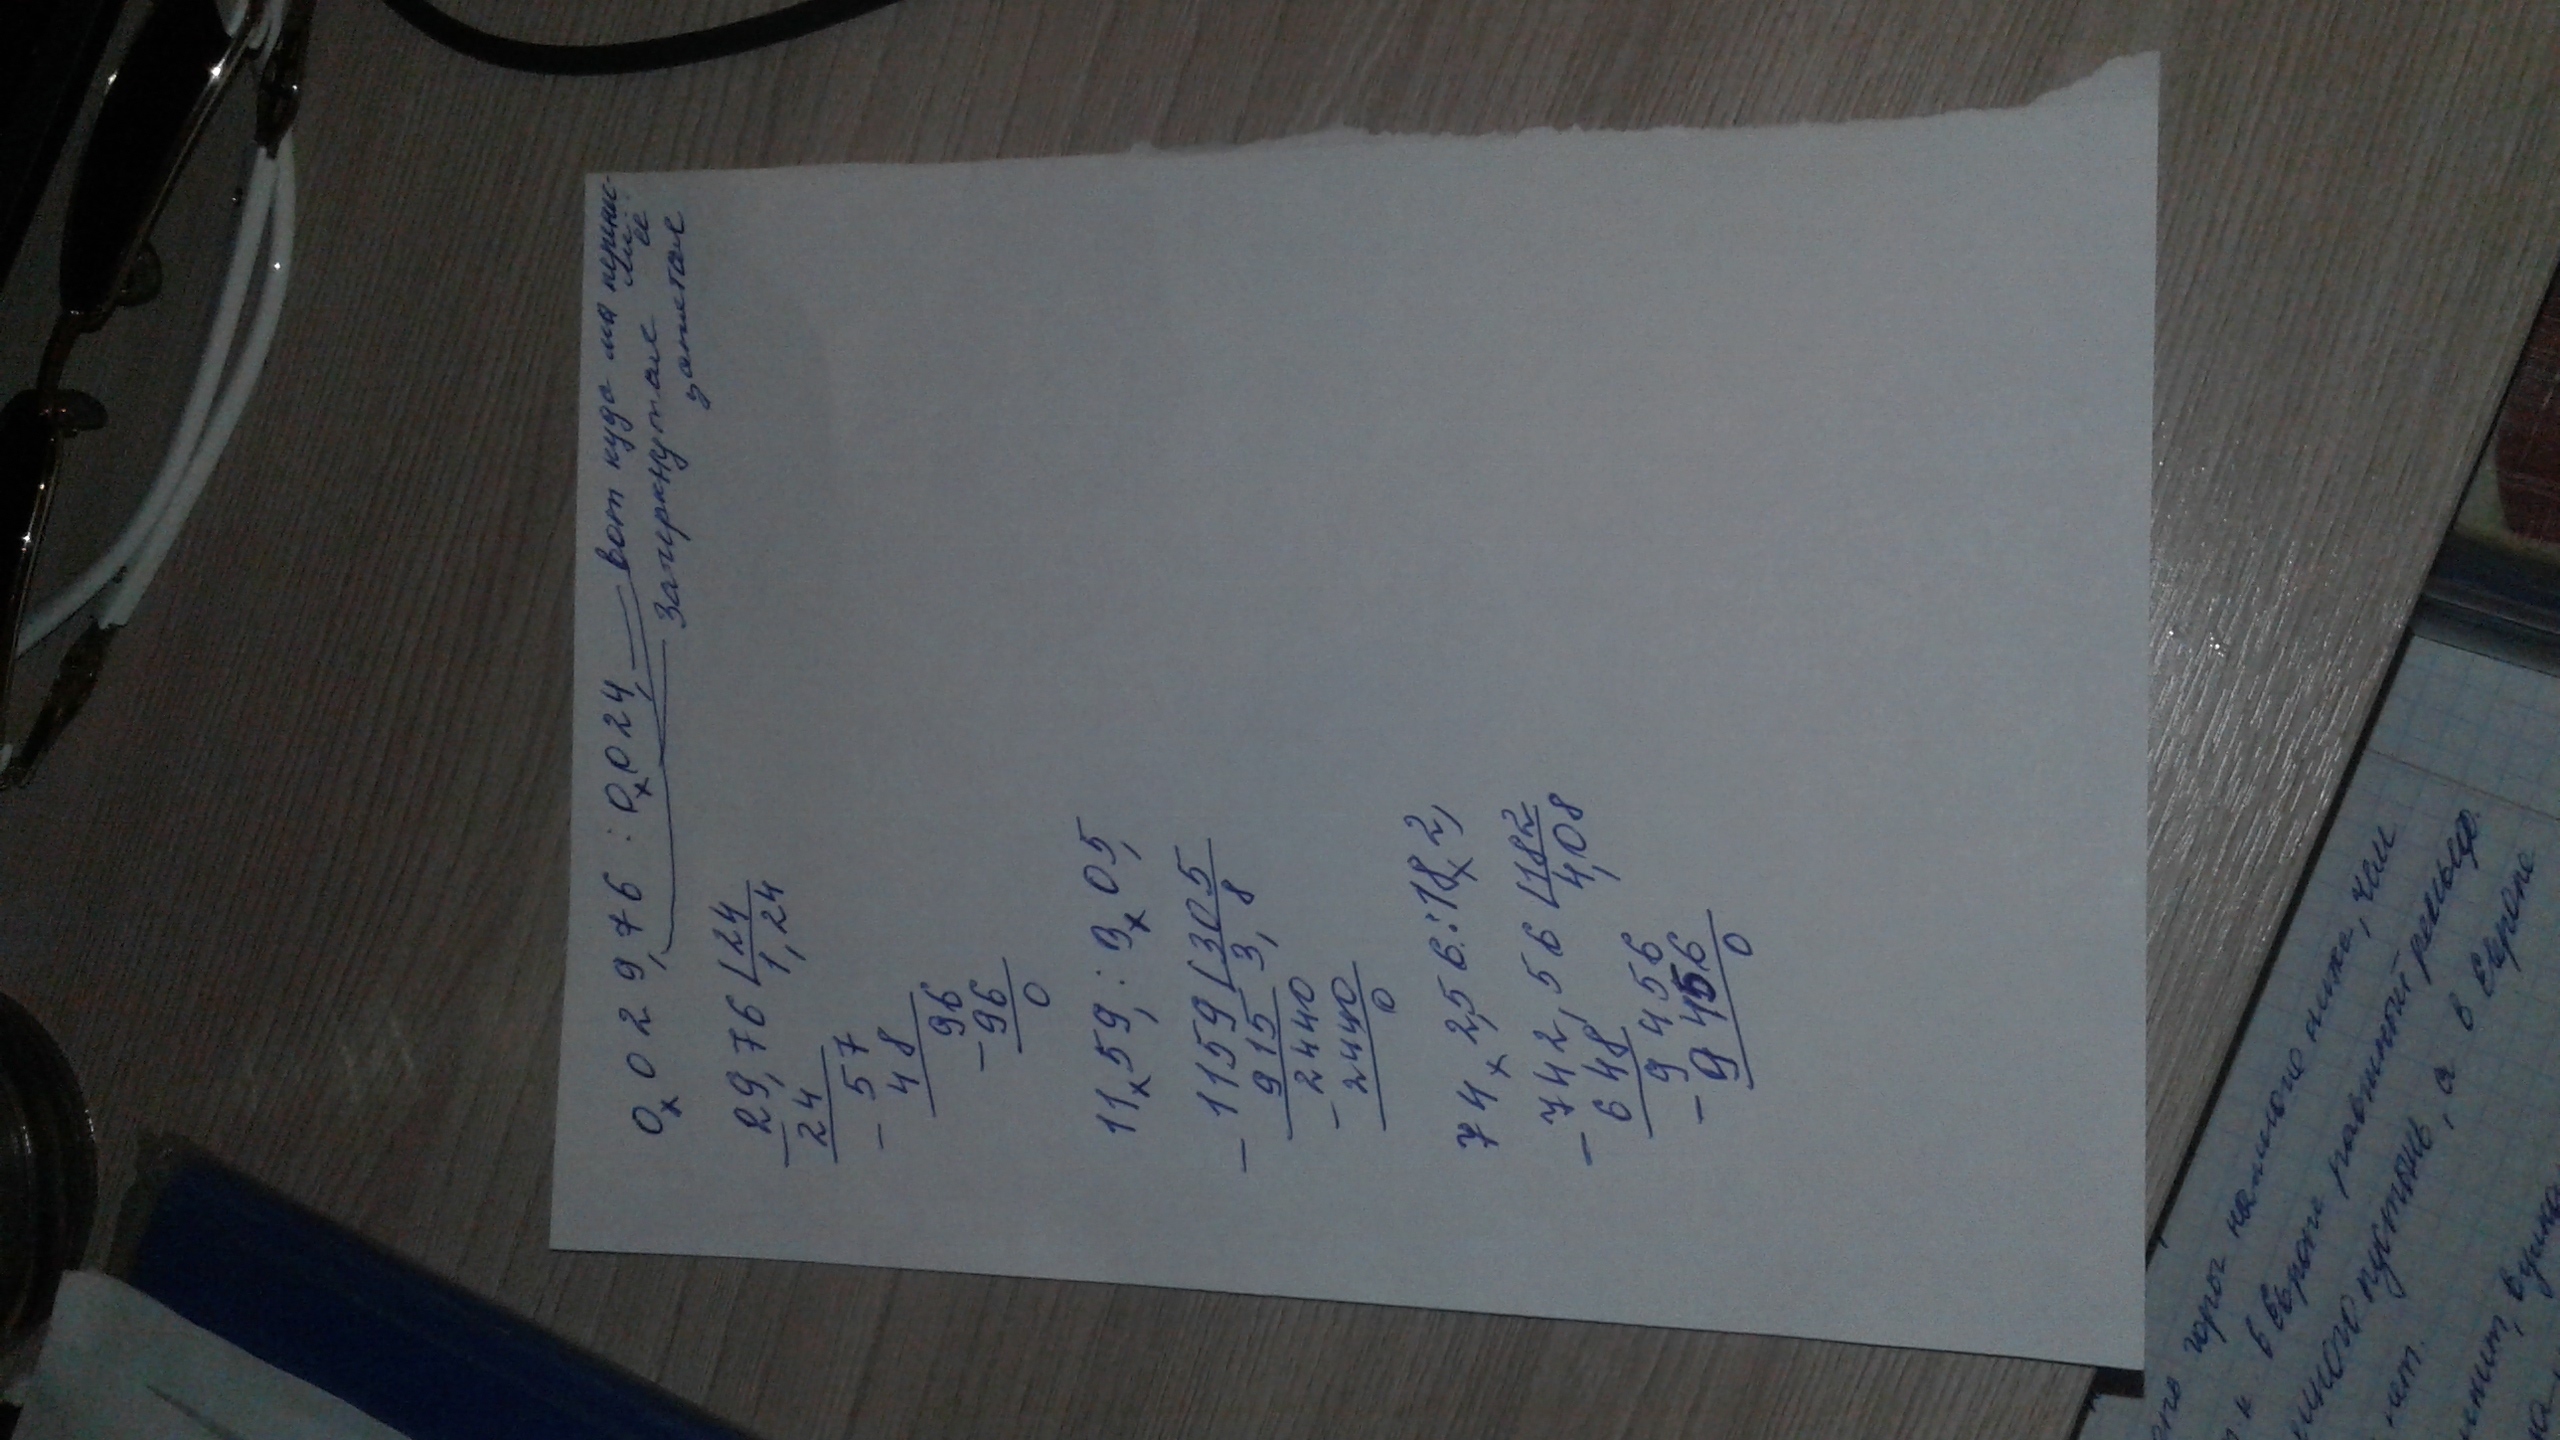 0,029,76 : 0,024, вот куда мы перенес-
ли ее
зачеркнутая
запятая
29,76 | 24
24 1,24
57
48
- 96
96
0
11,59, : 3,05,
- 1159 | 305
915 3,8
- 2440
2440
0
74,2,56 : 18,2,
- 742,56 | 182
648 4,08
9456
- 9456
0
горы намного ниже, чем
в Европе равнинный рельеф.
много пустынь, а в Европе